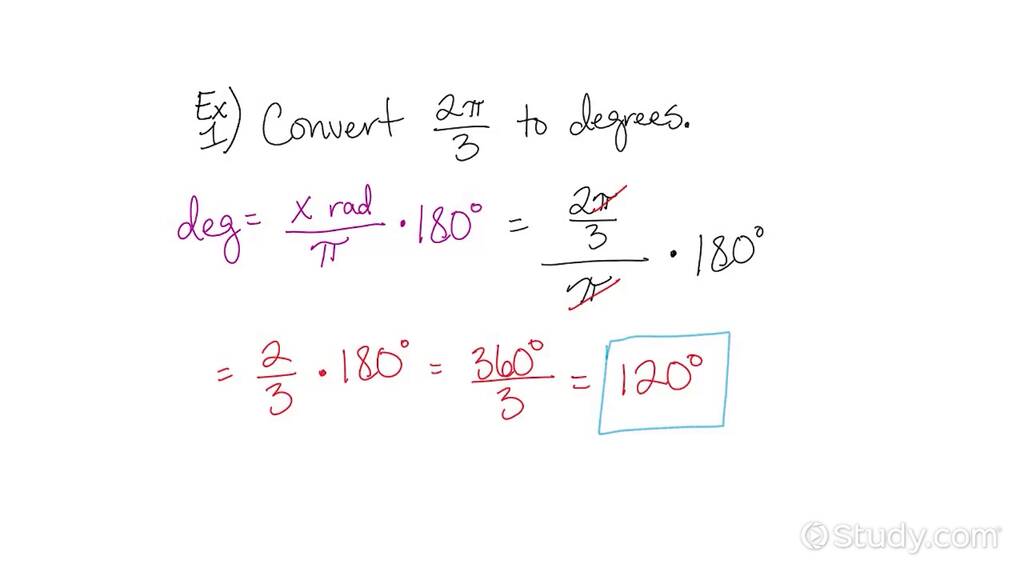 Ex 1) Convert 2π/3 to degrees.
deg = x rad/π · 180° = (2π/3)/π · 180°
= 2/3 · 180° = 360°/3 = 120°
Study.com